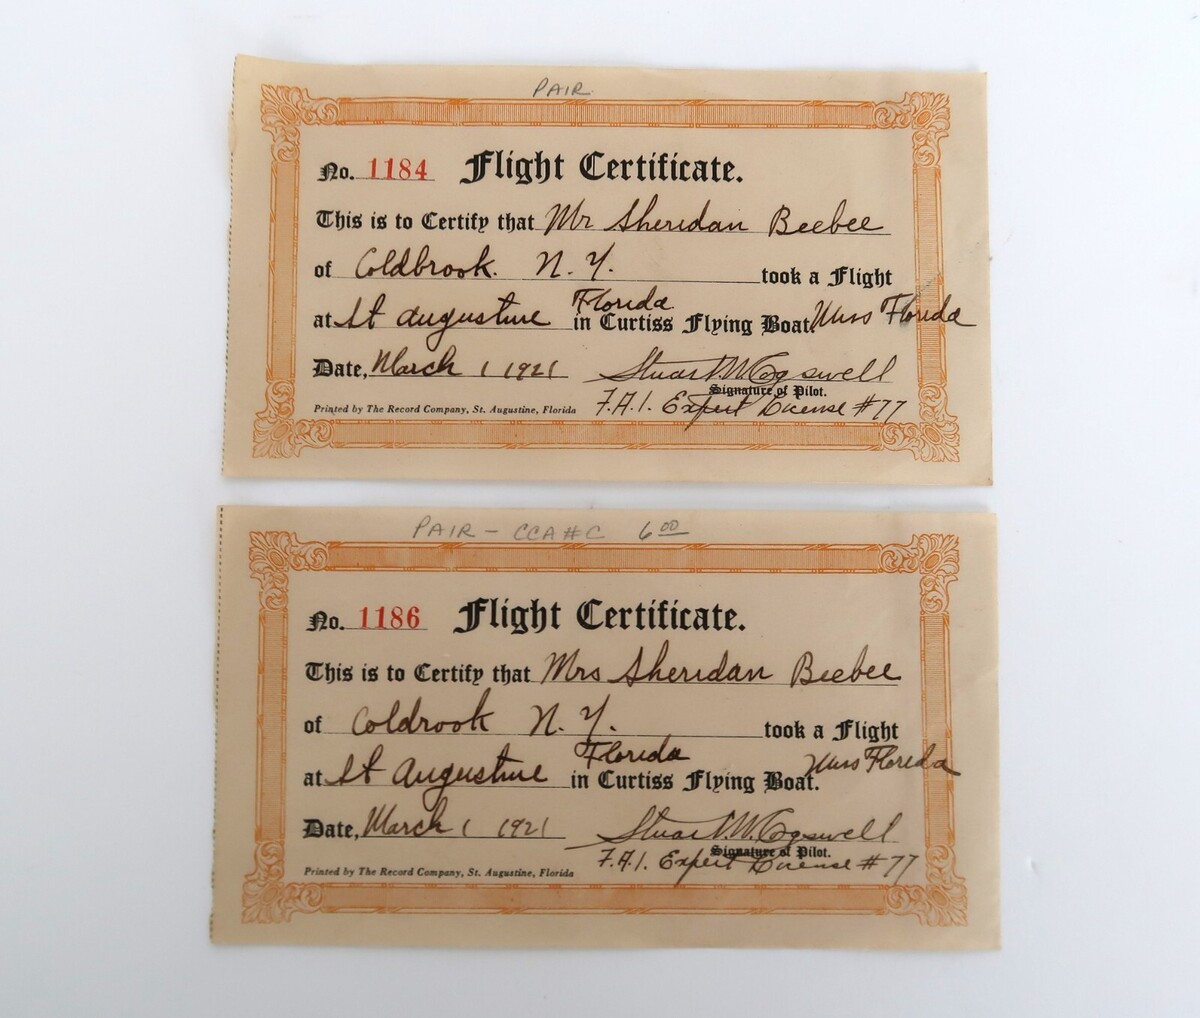 PAIR
No. 1184 Flight Certificate.
This is to Certify that Mr Sheridan Beebee
of Coldbrook. N. Y. took a Flight
at St Augustine Florida in Curtiss Flying Boat. Miss Florida
Date, March 1 1921 Stuart W. Cogswell
Signature of Pilot.
Printed by The Record Company, St. Augustine, Florida F.A.I. Expert License #77
PAIR - CCA#C 6 00
No. 1186 Flight Certificate.
This is to Certify that Mrs Sheridan Beebee
of Coldrook N. Y. took a Flight
at St Augustine Florida in Curtiss Flying Boat. Miss Florida
Date, March 1 1921 Stuart W. Cogswell
Signature of Pilot.
Printed by The Record Company, St. Augustine, Florida F.A.I. Expert License #77